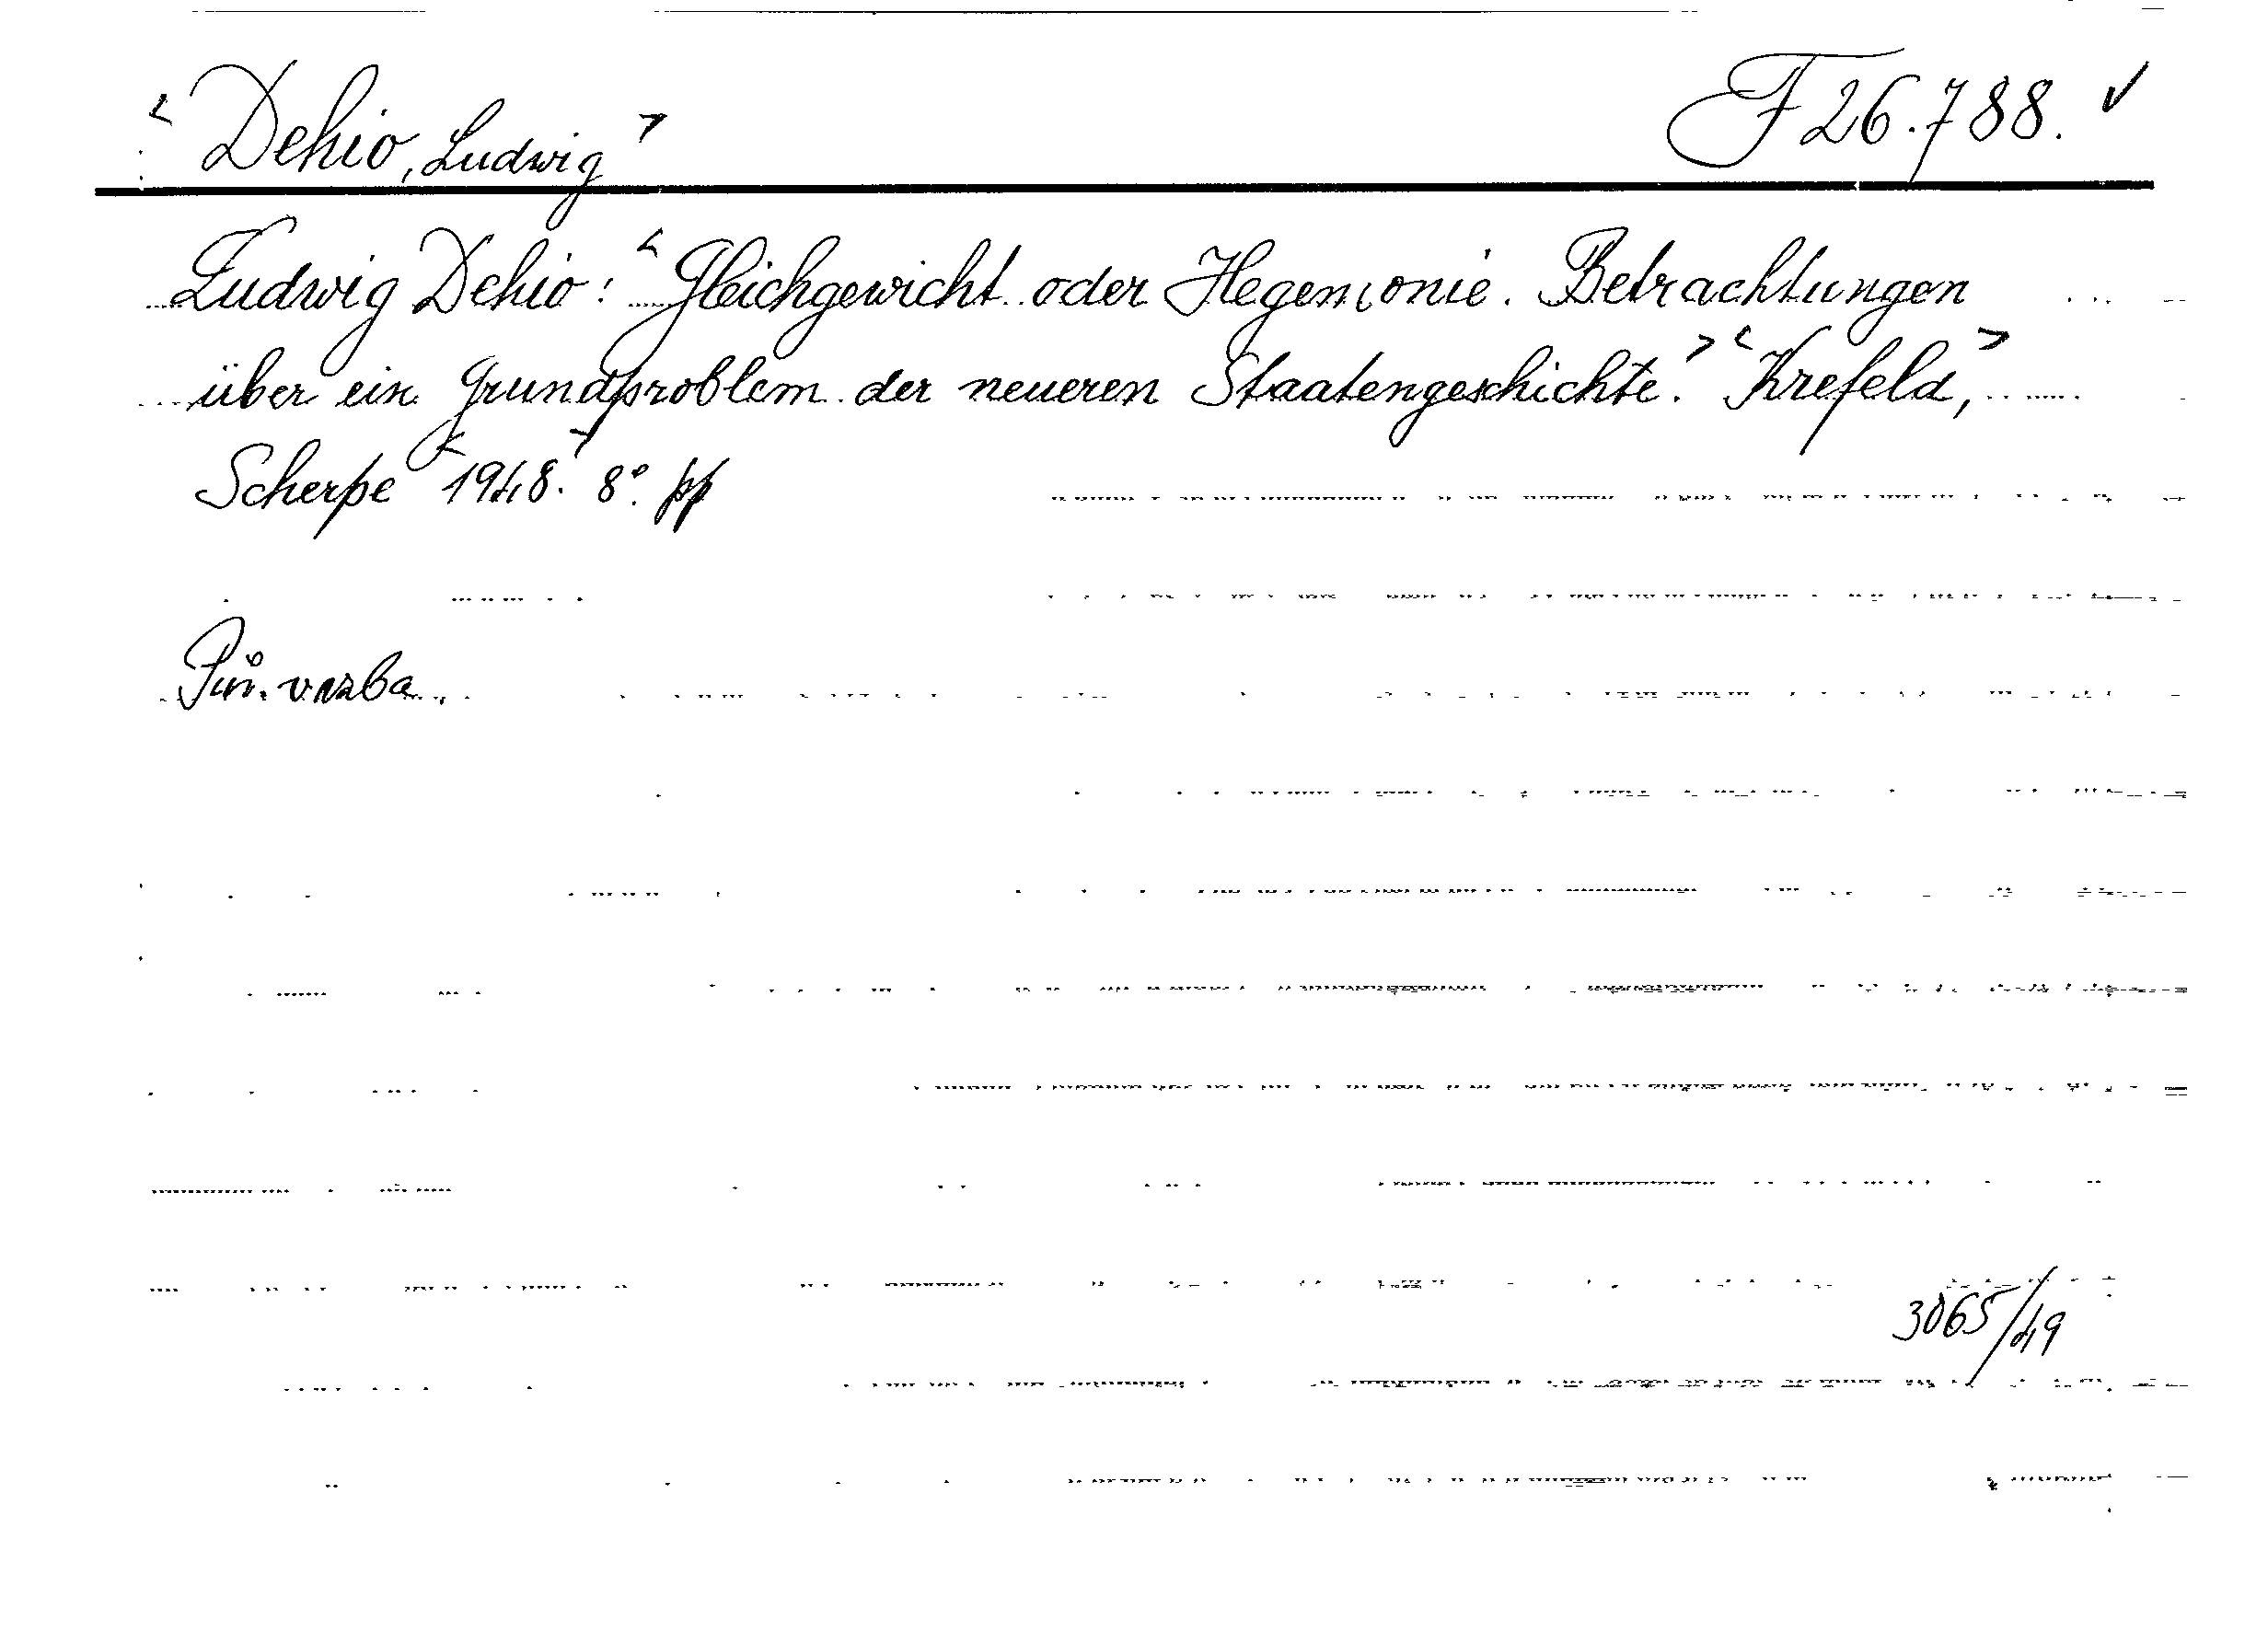 < Dehio, Ludwig > F 26.788. ✓
Ludwig Dehio: < Gleichgewicht oder Hegemonie. Betrachtungen
über ein Grundproblem der neueren Staatengeschichte. > < Krefeld, >
Scherpe < 1948. > 8°. pp
Pův. vazba.
3065/49